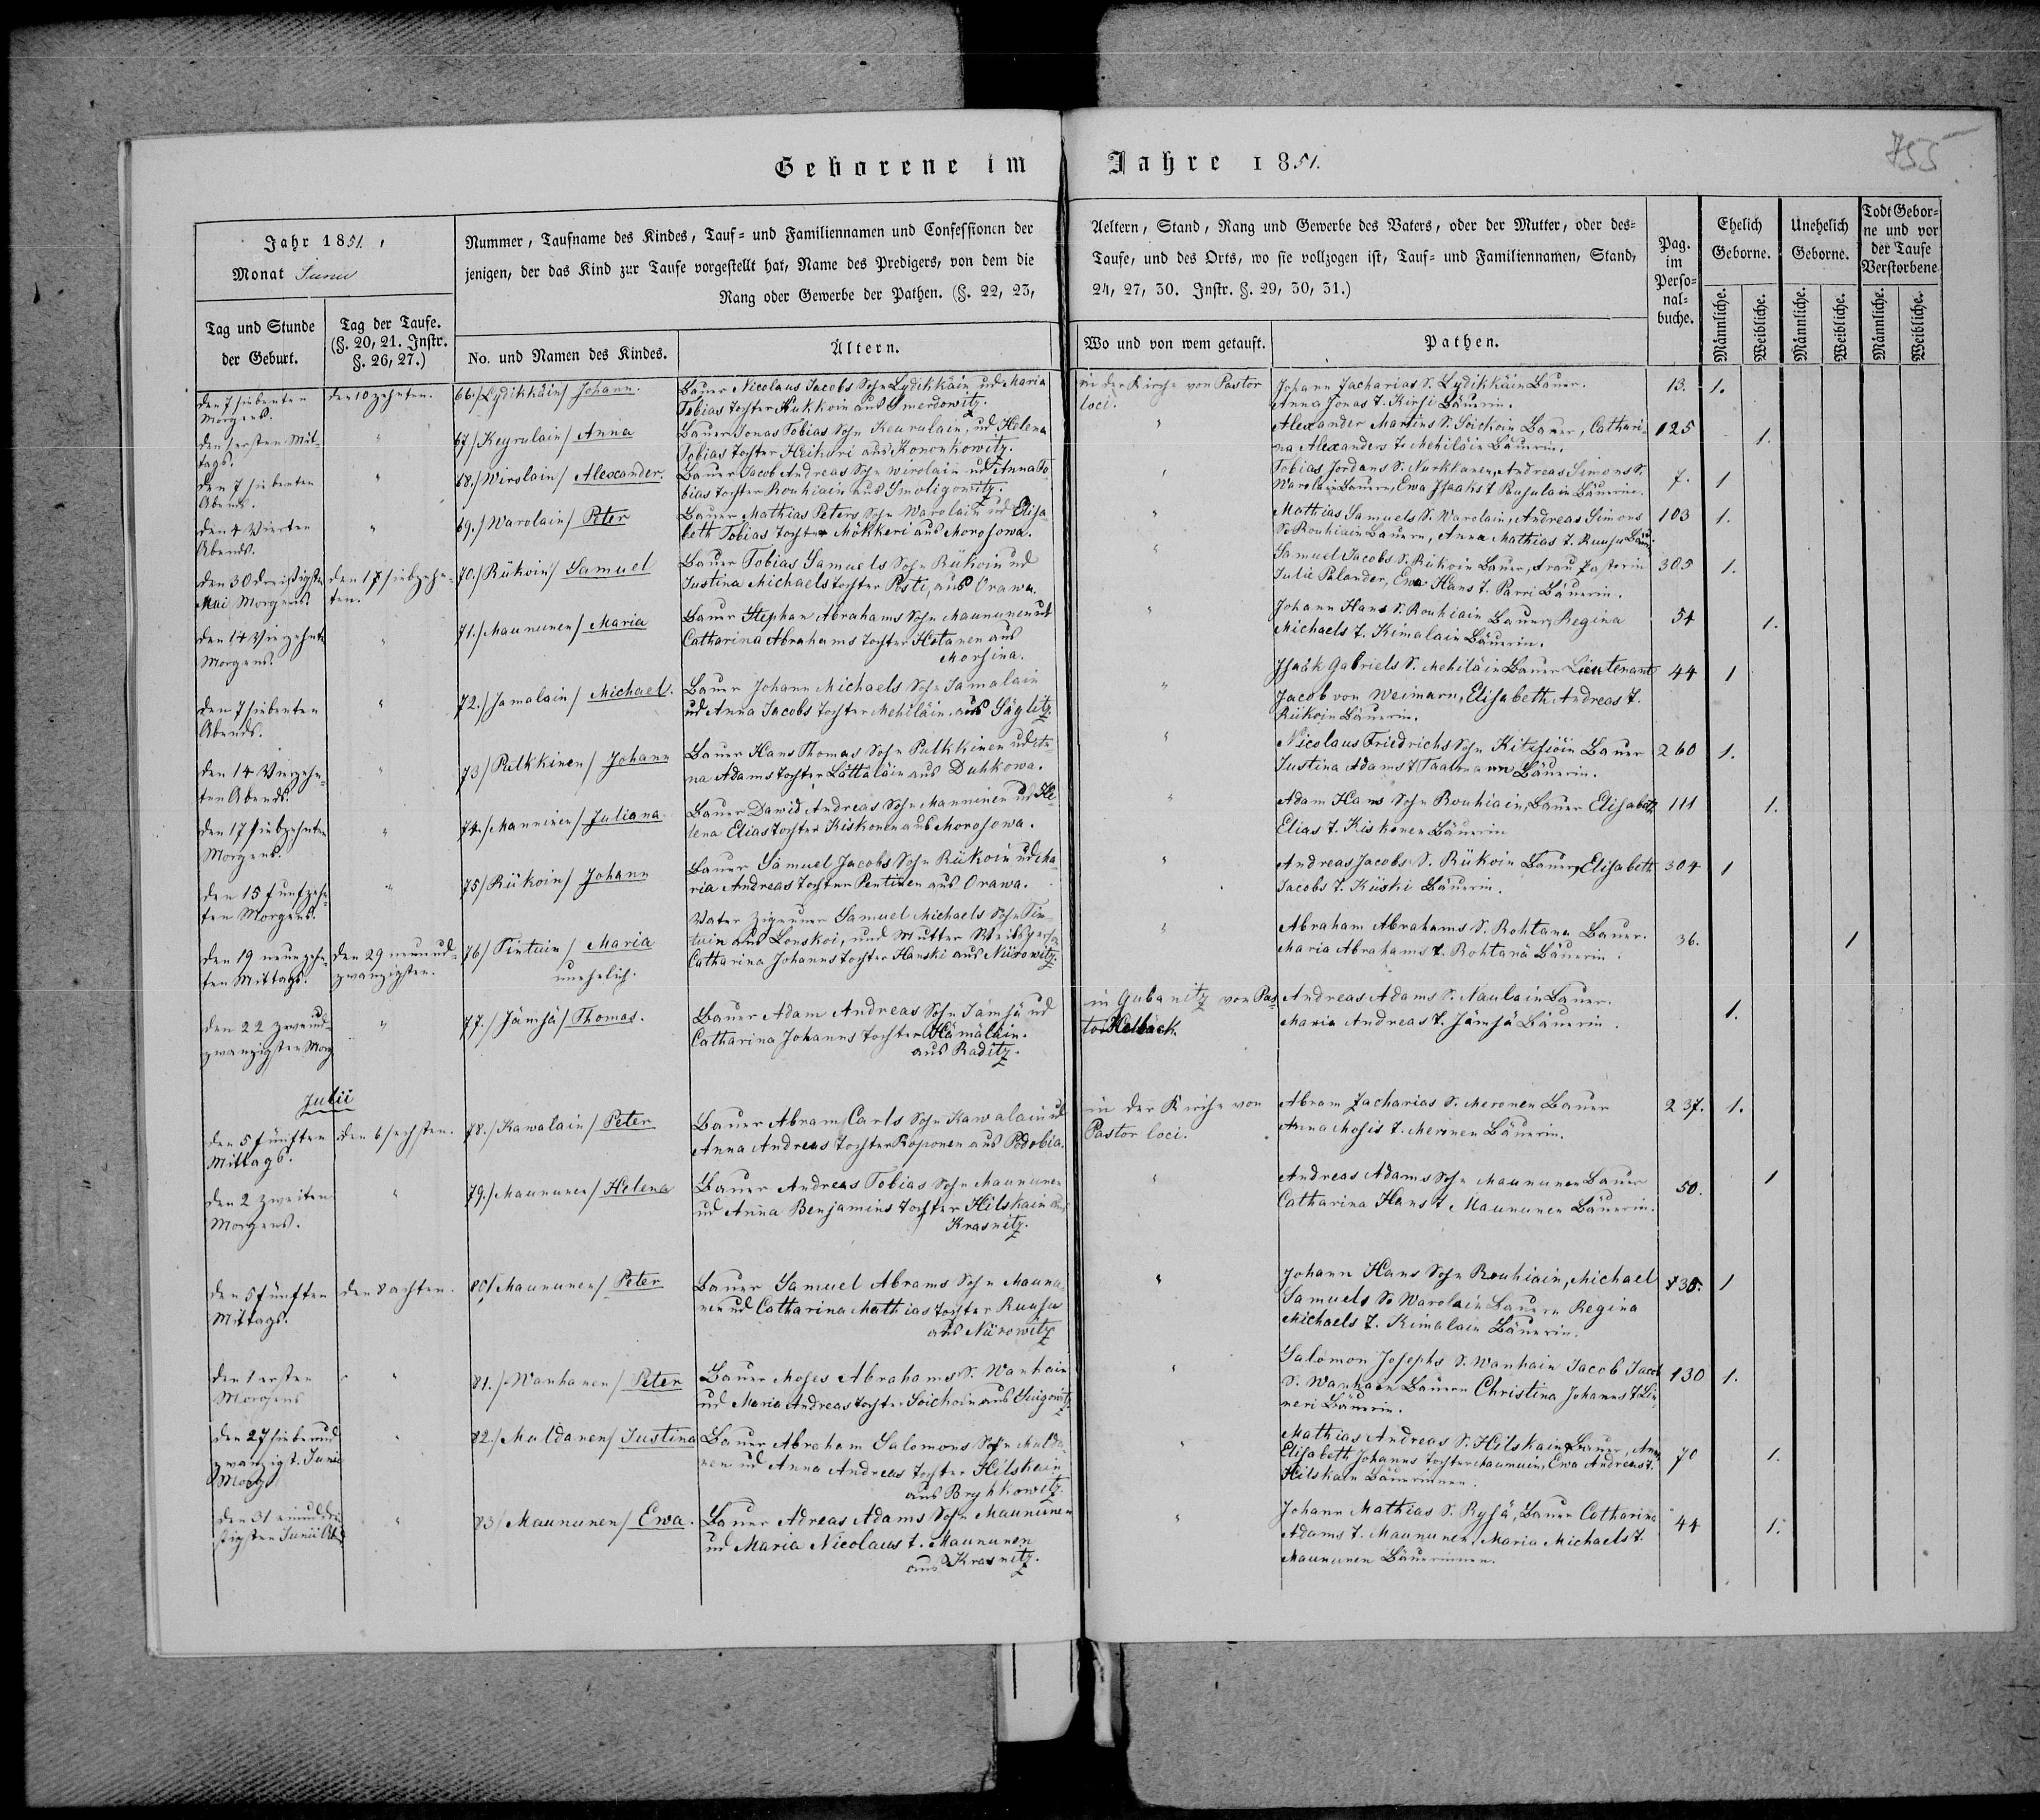 755
Geborene im Jahre 1851.
Jahr 1851.
Monat Junii
Nummer, Taufname des Kindes, Tauf- und Familiennamen und Confessionen der
jenigen, der das Kind zur Taufe vorgestellt hat, Name des Predigers, von dem die
Rang oder Gewerbe der Pathen. (§. 22, 23,
Aeltern, Stand, Rang und Gewerbe des Vaters, oder der Mutter, oder des-
Taufe, und des Orts, wo sie vollzogen ist, Tauf- und Familiennamen, Stand,
24, 27, 30. Instr. §. 29, 30, 31.)
Pag.
im
Perso-
nal-
buche.
Ehelich
Geborne.
Unehelich
Geborne.
Todt Gebor-
ne und vor
der Taufe
Verstorbene
Männliche.
Weibliche.
Männliche.
Weibliche.
Männliche.
Weibliche.
Tag und Stunde
der Geburt.
Tag der Taufe.
(§. 20, 21. Instr.
§. 26, 27.)
No. und Namen des Kindes.
Ältern.
Wo und von wem getauft.
Pathen.
den 7 siebenten
Morgens.
den 10 zehnten.
66./ Lydikkäin/ Johann.
Bauer Nicolaus Jacobs Sohn Lydikkäin ud Maria
Tobias Tochter Hukkoin aus Smerdowitz.
in der Kirche von Pastor
loci.
Johann Zacharias S. Lydikkäin Bauer.
Anna Jonas T. Kirsi Bäuerin.
13.
1.
den 1 ersten Mit-
tags.
"
67/ Keyrulain/ Anna
Bauer Jonas Tobias Sohn Keurulain, ud Helena
Tobias Tochter Heikari aus Kononkowitz.
"
Alexander Martins S. Soickoin Bauer, Cathari-
na Alexanders T. Mehiläin Bäuerin.
125
1.
den 7 siebenten
Abends.
"
68./ Wirolain/ Alexander.
Bauer Jacob Andreas Sohn Wirolain ud Anna To-
bias Tochter Rouhiain aus Smoligowitz.
"
Tobias Jordans S. Nurkkanen, Andreas Simons S.
Warolain Bauern, Ewa Isaaks T. Bäuerin.
7.
1
den 4 Vierten
Abends.
"
69./ Warolain/ Peter
Bauer Mathias Peters Sohn Warolain ud Elisa-
beth Tobias Tochter Mökkeri aus Morosowa.
"
Mathias Samuels S. Warolain, Andreas Simons
S. Rouhiain Bauern, Anna Mathias T. Ruusu Bäuer.
103
1.
den 30 dreißigsten
Mai Morgens
den 17 siebzehn-
ten.
70./ Rükoin/ Samuel
Bauer Tobias Samuels Sohn Rükoin ud
Justina Michaels Tochter Posti, aus Orawa.
"
Samuel Jacobs S. Rükoin Bauer, Frau Pastorin
Julie Palander, Ewa Hans T. Parri Bäuerin.
305
1.
den 14 Vierzehnten
Morgens.
"
71./ Maununen/ Maria
Bauer Stephan Abrahams Sohn Maununen ud
Catharina Abrahams Tochter Hotanen aus
Morsina.
"
Johann Hans S. Rouhiain Bauer, Regina
Michaels T. Kimalain Bäuerin.
54
1.
den 7 siebenten
Abends.
"
72./ Jamalain/ Michael.
Bauer Johann Michaels Sohn Jamalain
ud Anna Jacobs Tochter Mehiläin aus Säglitz.
"
Isaak Gabriels S. Mehiläin Bauer Lieutenant
Jacob von Weimarn, Elisabeth Andreas T.
Rükoin Bäuerin.
44
1
den 14 Vierzehn-
ten Abends.
"
73/ Pulkkinen/ Johann
Bauer Hans Thomas Sohn Pulkkinen ud An-
na Adams Tochter Lättäläin aus Duhkowa.
"
Nicolaus Friedrichs Sohn Bauer
Justina Adams T. Bäuerin.
260
1.
den 17 siebzehnten
Morgens.
"
74./ Manninen/ Juliana
Bauer Dawid Andreas Sohn Manninen ud He-
lena Elias Tochter Kiskonen aus Morosowa.
"
Adam Hans Sohn Rouhiain, Bauer Elisabeth
Elias T. Kiskonen Bäuerin
111
1.
den 15 fünfzehn-
ten Morgens.
"
75/ Rükoin/ Johann
Bauer Samuel Jacobs Sohn Rükoin ud Ma-
ria Andreas Tochter Pentinen aus Orawa.
"
Andreas Jacobs S. Rükoin Bauer, Elisabeth
Jacobs T. Küski Bäuerin.
304
1
den 19 neunzehn-
ten Mittags.
den 29 neunund-
zwanzigsten.
76/ Tintuin/ Maria
unehelich.
Vater Zigeuner Samuel Michaels Sohn Tin-
tuin aus Lonskoi, und Mutter Weibsperson
Catharina Johanns Tochter Hanski aus Nürowitz.
"
Abraham Abrahams S. Rohtana Bauer.
Maria Abrahams T. Rohtanä Bäuerin.
36.
1
den 22 zweiund-
zwanzigsten Morg
"
77./ Jämsä/ Thomas.
Bauer Adam Andreas Sohn Jämsä ud
Catharina Johanns Tochter Hämäläin.
aus Raditz.
in Gubanitz von Pas-
tor Hellbäck
Andreas Adams S. Naulain Bauer.
Maria Andreas T. Jämsä Bäuerin.
1.
Julii
den 5 fünften
Mittags.
den 6 sechsten.
78./ Kawalain/ Peter
Bauer Abram Carls Sohn Kawalain ud
Anna Andreas Tochter Roponen aus Podobia.
in der Kirche von
Pastor loci.
Abram Zacharias S. Meronen Bauer
Anna Mosis T. Meronen Bäuerin.
237.
1.
den 2 zweiten
Morgens.
"
79./ Maununen/ Helena
Bauer Andreas Tobias Sohn Maununen
ud Anna Benjamins Tochter Hilskain aus
Krasnitz.
"
Andreas Adams Sohn Maununen Bauer
Catharina Hans T. Maununen Bäuerin.
50.
1
den 5 fünften
Mittags.
den 8 achten.
80/ Maununen/ Peter
Bauer Samuel Abrams Sohn Maunu-
nen ud Catharina Mathias Tochter Ruusu
aus Nürowitz
"
Johann Hans Sohn Rouhiain, Michael
Samuels S. Warolain Bauern Regina
Michaels T. Kimalain Bäuerin.
735.
1
den 1 ersten
Morgens
"
81./ Wanhanen/ Peter
Bauer Moses Abrahams S. Wanhain
ud Maria Andreas Tochter Soickoin aus
"
Salomon Josephs S. Wanhain Jacob Jacob
S. Wanhain Bauern Christina Johanns T. Lin-
neri Bäuerin.
130
1.
den 27 siebenund
zwanzigt. Junii
Morg
"
82./ Muldanen/ Justina
Bauer Abraham Salomons Sohn Mulda-
nen ud Anna Andreas Tochter Hilskain
aus Bryhkowitz.
"
Mathias Andreas S. Hilskain Bauer, Anna
Elisabeth Johanns Tochter Maunuin, Ewa Andreas T.
Hilskain Bäuerinnen.
70
1.
den 31 einunddrei
sigsten Junii Abd
"
83/ Maununen/ Ewa.
Bauer Adreas Adams Sohn Maununen
ud Maria Nicolaus t. Maununen
aus Krasnitz.
"
Johann Mathias S. Rysä, Bauer Catharina
Adams T. Maununen, Maria Michaels T.
Maununen Bäuerinnen.
44
1.